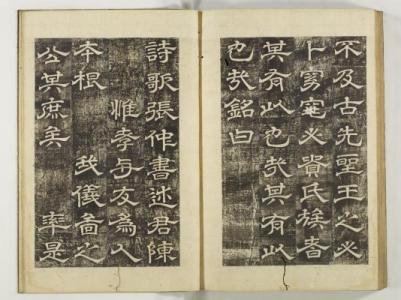 不及古先聖王之必
卜必資民族者
其有以也哉其有以
也哉銘曰
詩歌張仲書述君陳
惟孝与友為人
本根 我儀啚之
公其庶矣 率是